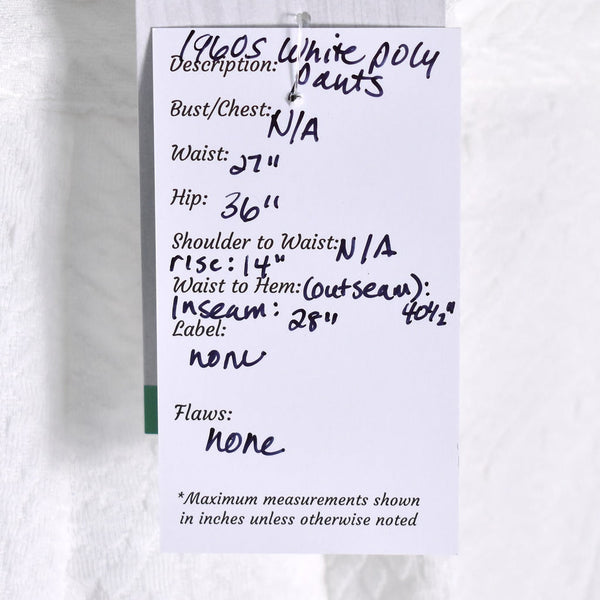 1960s White poly
Description: pants
Bust/Chest: N/A
Waist: 27"
Hip: 36"
Shoulder to Waist: N/A
rise: 14"
Waist to Hem: (outseam):
Inseam: 28" 40 1/2"
Label:
none
Flaws:
none
*Maximum measurements shown
in inches unless otherwise noted